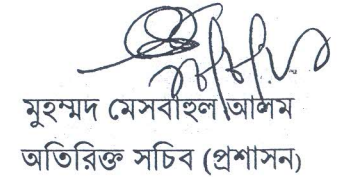 মুহম্মদ মেসবাহুল আলম
অতিরিক্ত সচিব (প্রশাসন)